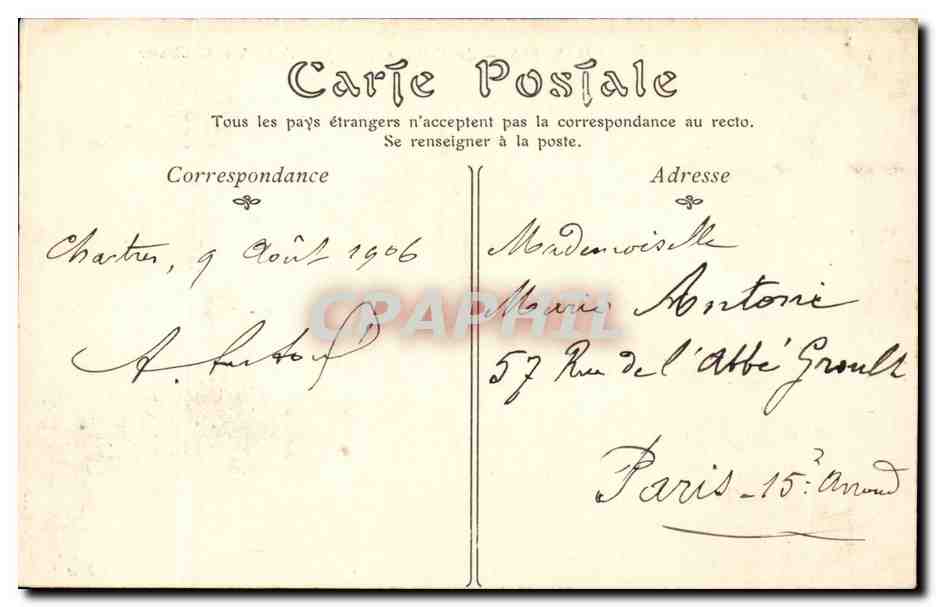 Carte Postale
Tous les pays étrangers n'acceptent pas la correspondance au recto.
Se renseigner à la poste.
Correspondance
Chartres, 9 Août 1906
A.
Adresse
Mademoiselle
Marie Antoni
57 Rue de l'Abbé Groult
Paris - 15e Arrond
CPAPHIL